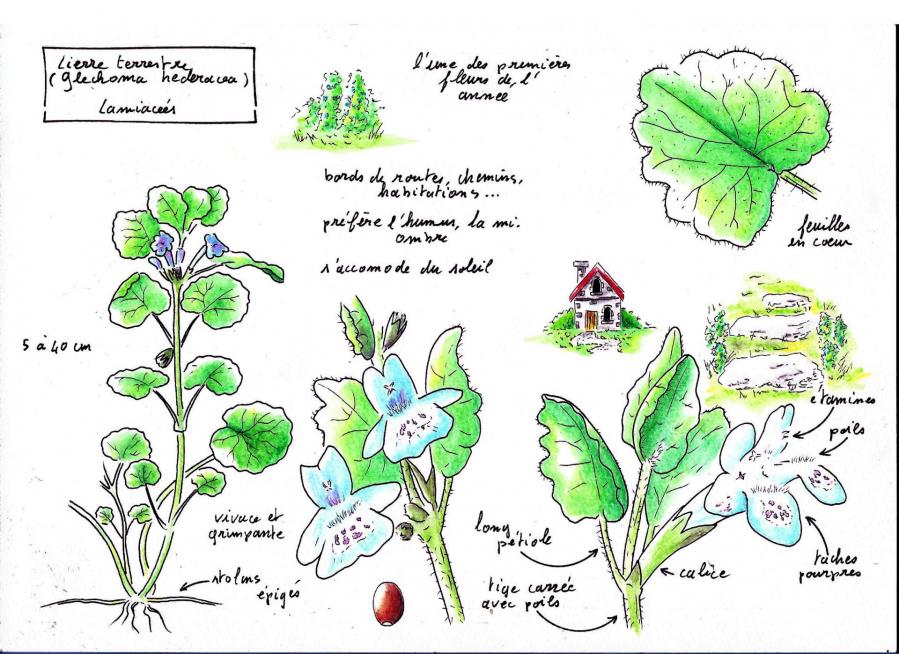 Lierre terrestre
(Glechoma hederacea)
Lamiacées
l'une des premières
fleurs de l'
année
bords de routes, chemins,
habitutions...
préfère l'humus, la mi-
ombre
s'accomode du soleil
feuilles
en coeur
5 à 40 cm
étamines
poils
vivace et
grimpante
long
pétiole
tâches
pourpres
calice
stolons
épigés
tige carrée
avec poils